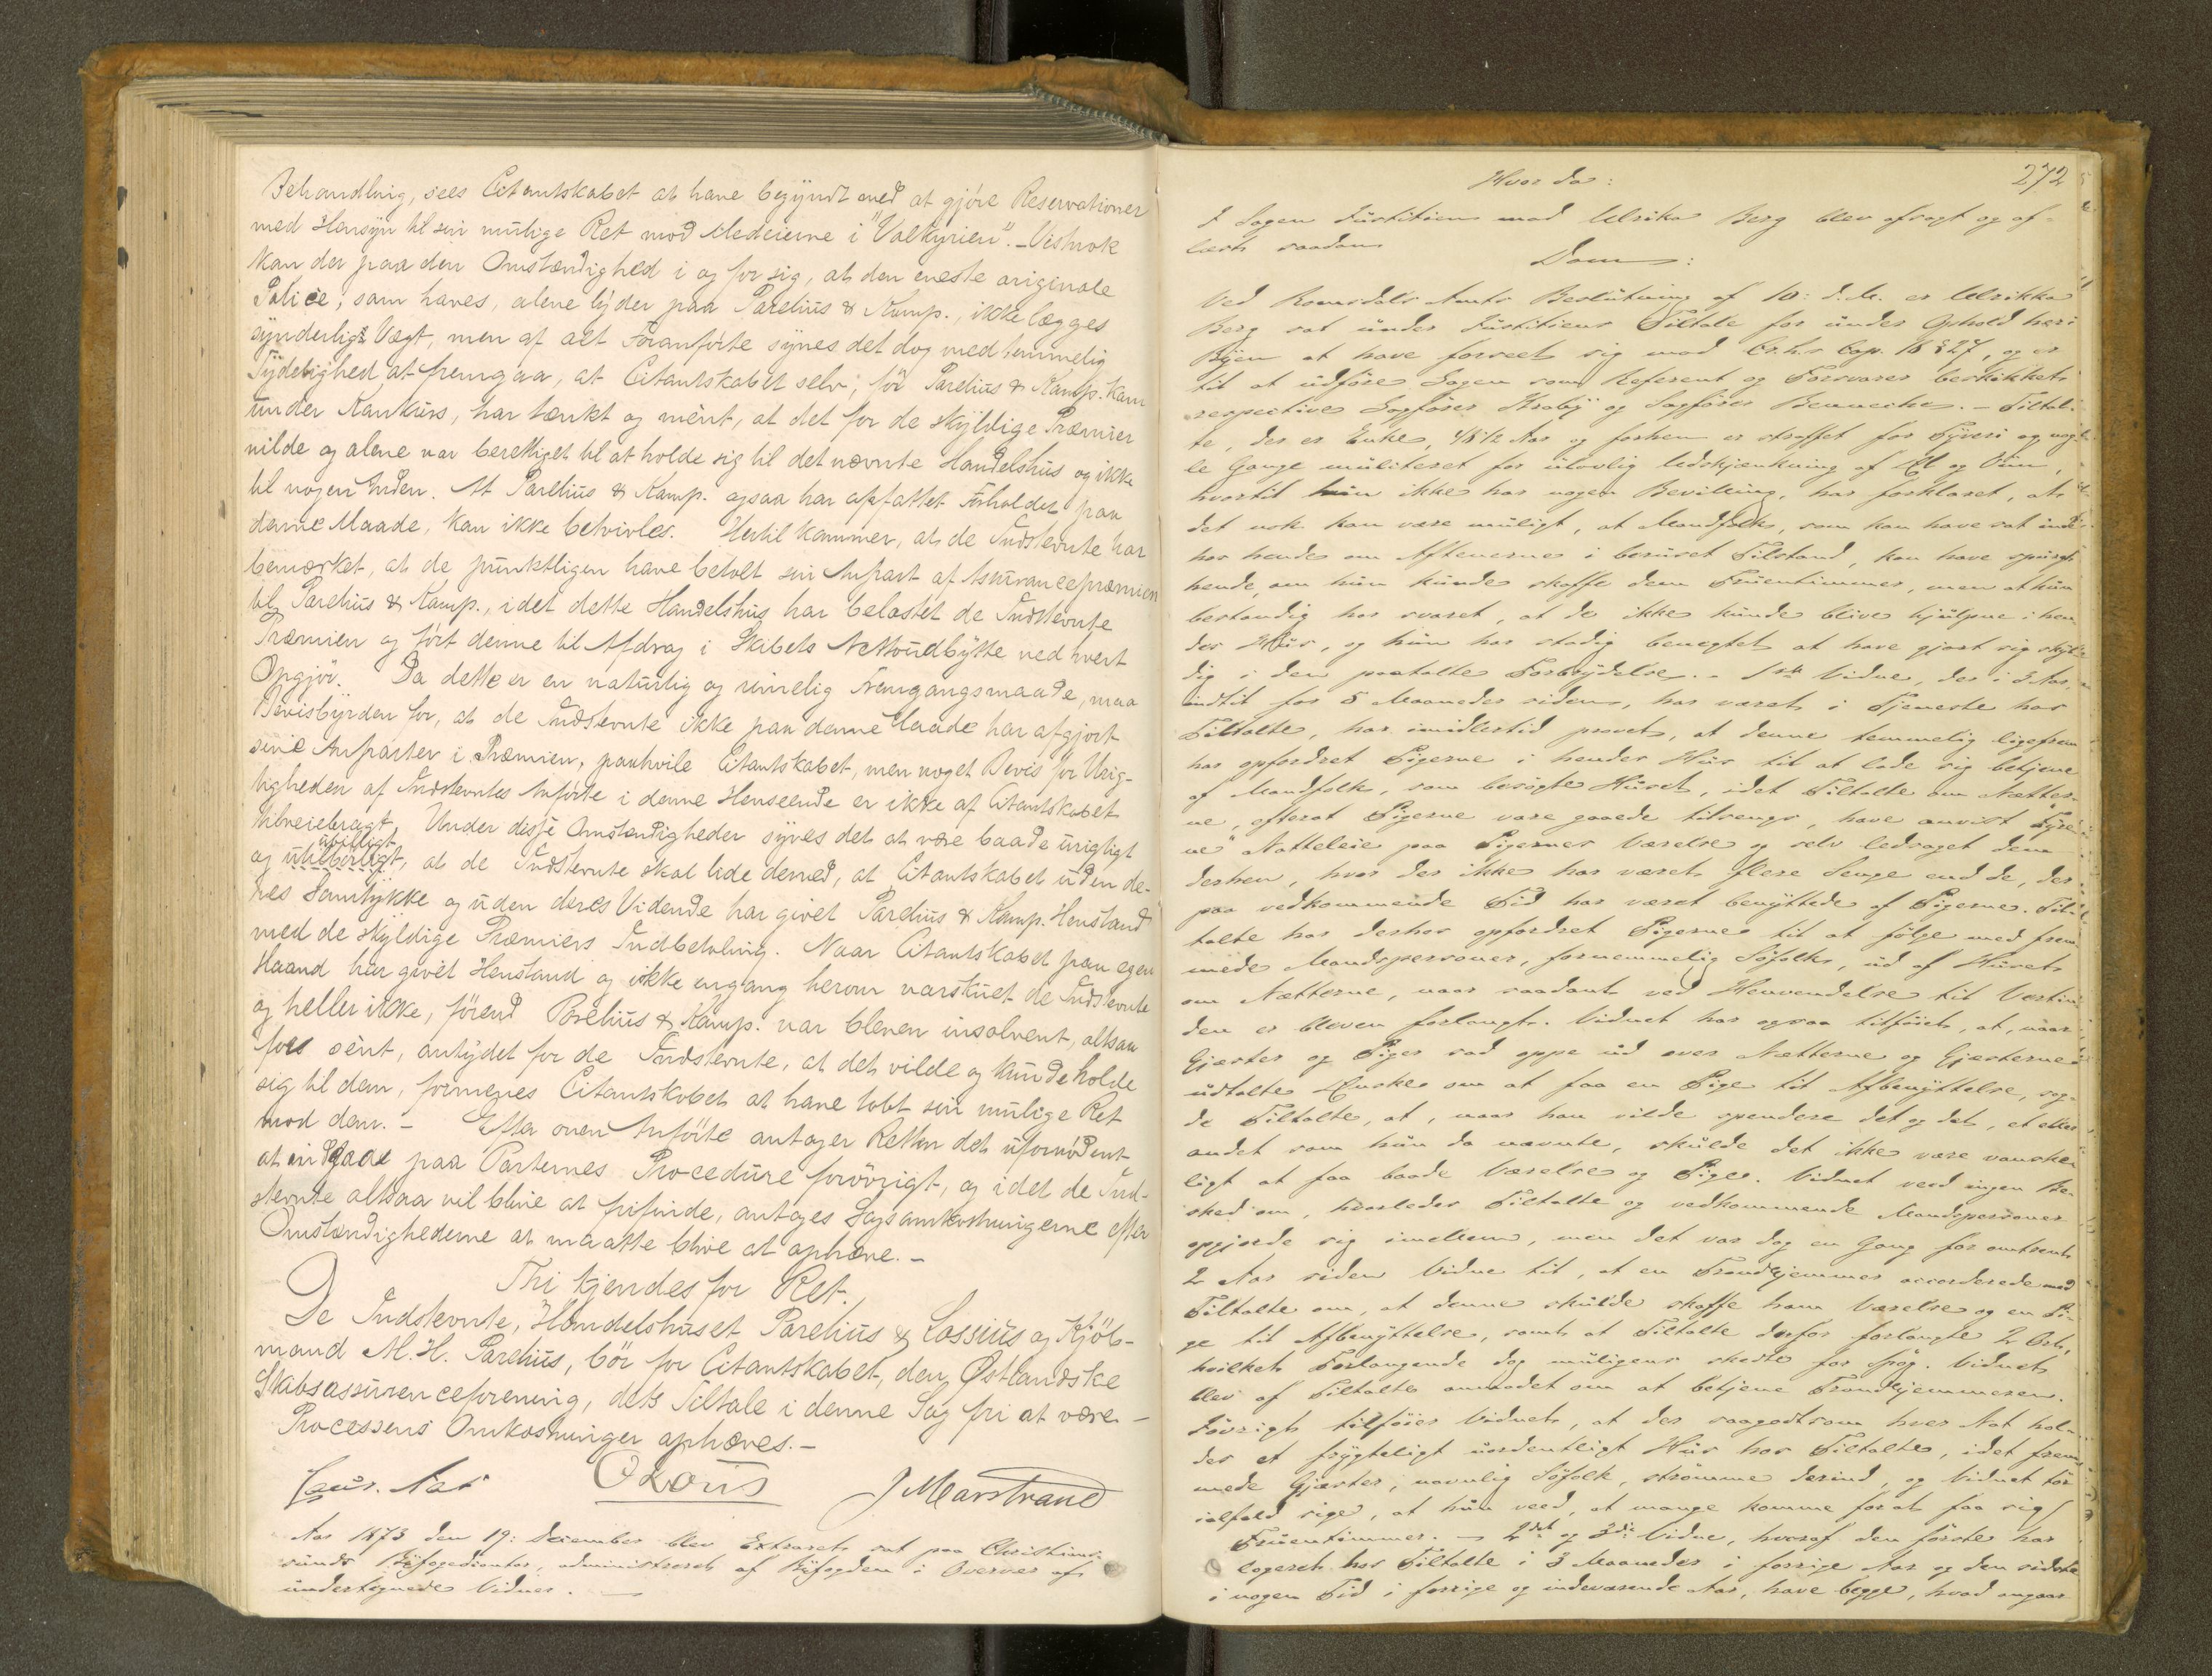 Behandling, sees Citantskabet at have begyndt med at gjöre Reservationer
med Hensyn til sin mulige Ret mod Medeierne i "Valkyrien". - Vistnok
kan der paa den Omstændighed i og for sig, at den eneste originale
Police, som haves, alene lyder paa Parelius & Komp., ikke lægges
synderligt Vægt, men af alt Foranförte synes det dog med temmelig
Tydelighed at fremgaa, at Citantskabet selv, för Parelius & Komp. kom
under Konkurs, har tænkt og ment, at det for de skyldige Præmier
vilde og alene var berettiget til at holde sig til det nævnte Handelshus og ikke
til nogen Anden. At Parelius & Komp. ogsaa har opfattet Forholdet paa
denne Maade, kan ikke betvivles. Hertil kommer, at de Indstevnte har
bemærket, at de punktligen have betalt sin Anpart af Assurancepræmien
til Parelius & Komp., idet dette Handelshus har belastet de Indstevnte
Præmien og fört denne til Afdrag i Skibets Nettoudbytte ved hvert
Opgjör. Da dette er en naturlig og rimelig Fremgangsmaade, maa
Bevisbyrden for, at de Indstevnte ikke paa denne Maade har afgjort
sine Anparter i Præmien, paahvile Citantskabet, men noget Bevis for Urig-
tigheden af Indstevntes Anförte i denne Henseende er ikke af Citantskabet
tilveiebragt. Under disse Omstændigheder synes det at være baade urigtigt
ubilligt
og utilbörligt, at de Indstevnte skal lide derved, at Citantskabet uden de-
res Samtykke og uden deres Vidende har givet Parelius & Komp. Henstand
med de skyldige Præmiers Indbetaling. Naar Citantskabet paa egen
Haand har givet Henstand og ikke engang herom varskuet de Indstevnte
og heller ikke, förend Parelius & Komp. var bleven insolvent, altsaa
for sent, antydet for de Indstevnte, at det vilde og kunde holde
sig til dem, formenes Citantskabet at have tabt sin mulige Ret
mod dem. - Efter oven Anförte antager Retten det ufornödent
at indgaae paa Parternes Procedure forövrigt, og idet de Ind-
stevnte altsaa vil blive at frifinde, antages Sagsomkostningerne efter
Omstændighederne at maatte blive at ophæve. -
Thi kjendes for Ret.
De Indstevnte, Handelshuset Parelius & Lossius og Kjöb-
mand M. H. Parelius, bör for Citantskabet, den Østlandske
Skibsassuranceforening, dets Tiltale i denne Sag fri at være. -
Processens Omkostninger ophæves. -
O Lous J Marstrand
Aar 1873 den 19: December blev Extraret sat paa Christian-
sunds Byfogedkontor, administreret af Byfogden i Overvær af
undertegnede Vidner. -
272
Hvor da:
I Sagen Justitien mod Ulrika Berg blev afsagt og af-
læst saadan
Dom:
Ved Romsdals Amts Beslutning af 10: d. M. er Ulrikka
Berg sat under Justitiens Tiltale for under Ophold her i
Byen at have forseet sig mod Cr.L.s Cap. 18 § 27, og er
til at udföre Sagen som Referent og Forsvarer beskikket
respective Sagförer Kraby og Sagförer Benneche. - Tiltal-
te, der er Enke, 48 1/2 Aar og forhen er straffet for Tyveri og nog-
le Gange mulcteret for ulovlig Udskjænkning af Øl og Viin,
hvortil hun ikke har nogen Bevilling, har forklaret, at
det nok kan være muligt, at Mandfolk, som kan have sat inde
hos hende om Aftenerne i beruset Tilstand, kan have spurgt
hende, om hun kunde skaffe dem Fruentimmer, men at hun
bestandig har svaret, at de ikke kunde blive hjulpne i hen-
des Huus, og hun har stadig benegtet at have gjort sig skyl-
dig i den paatalte Forbrydelse. - 1ste Vidne, der i 3 Aar,
indtil for 5 Maaneder siden, har været i Tjeneste hos
Tiltalte, har imidlertid provet, at denne temmelig ligefrem
har opfordret Pigerne i hendes Huus til at lade sig betjene
af Mandfolk, som besögte Huset, idet Tiltalte om Nætter-
ne, efterat Pigerne vare gaaede tilsengs, have anvist "Fyre-
ne" Natteleie paa Pigernes Værelse og selv ledsaget dem
derhen, hvor der ikke har været flere Senge end de, der
paa vedkommende Tid har været benyttede af Pigerne. Til-
talte har derhos opfordret Pigerne til at fölge med frem-
mede Mandspersoner, fornemmelig Söfolk, ud af Huset
om Nætterne, naar saadant ved Henvendelse til Vertin-
den er bleven forlangt. Vidnet har ogsaa tilföiet, at, naar
Gjæster og Piger sad oppe ud over Nætterne og Gjæsterne
udtalte Ønske om at faa en Pige til Afbenyttelse, sag-
de Tiltalte, at, naar han vilde spendere det og det, et eller
andet som hun da nævnte, skulde det ikke være vanske-
ligt at faa baade Værelse og Pige. Vidnet veed ingen Be-
sked om, hvorledes Tiltalte og vedkommende Mandspersoner
opgjorde sig imellem, men det var dog en Gang for omtrent
2 Aar siden Vidne til, at en Trondhjemmer accorderede med
Tiltalte om, at denne skulde skaffe ham Værelse og en Pi-
ge til Afbenyttelse, samt at Tiltalte derfor forlangte 2 Ort,
hvilket Forlangende dog muligens skeete for Spög. Vidnet
blev af Tiltalte anmodet om at betjene Trondhjemmeren.
Iövrigt tilföier Vidnet, at der saagodtsom hver Nat hol-
des et frygteligt uordentligt Huus hos Tiltalte, idet frem-
mede Gjæster, navnlig Söfolk, strömme derind, og Vidnet tör
ialfald sige, at hun veed, at mange komme for at faa sig
Fruentimmer. - 2det og 3die Vidne, hvoraf den förste har
logeret hos Tiltalte i 3 Maaneder i forrige Aar og den sidste
i nogen Tid i forrige og indeværende Aar, have begge, hvad angaar